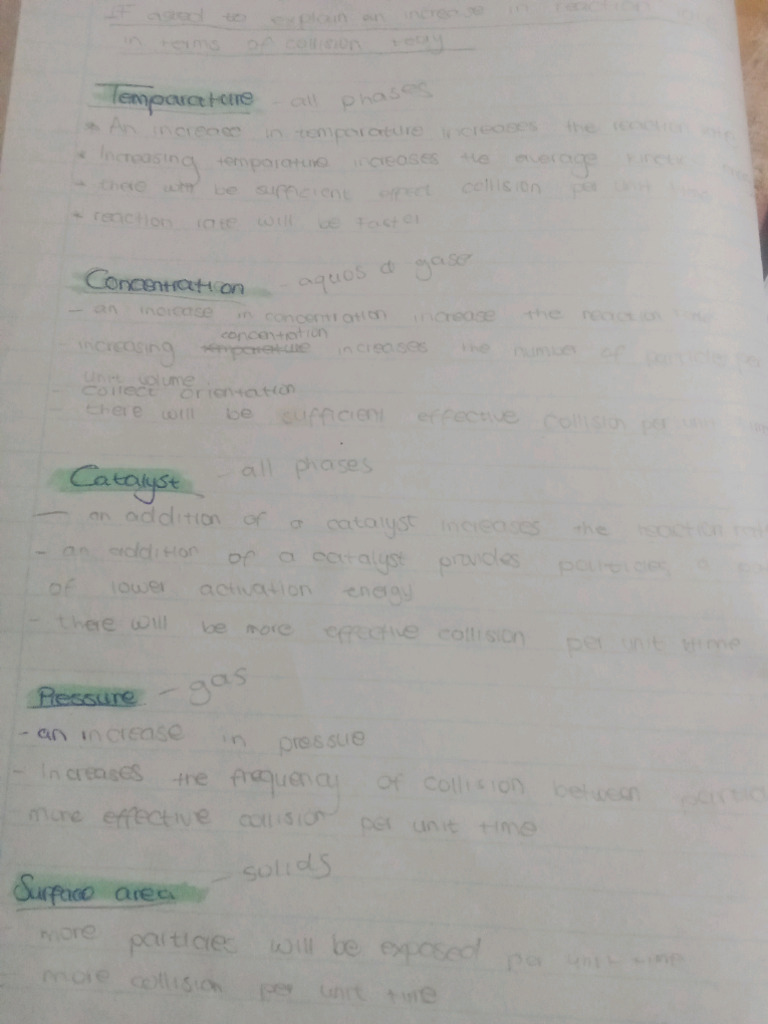 If asked to explain an increase in reaction
in terms of collision teory
Temparature - all phases
* An increase in temparature increases the reaction
* Increasing temparature increases the average kinetic
* there will be sufficient effect collision per unit time
* reaction rate will be faster
Concentration - aquos & gase
- an increase in concentration increase the reaction
concentration
- increasing temparature increases the number of particles per
unit volume
- collect orientation
- there will be sufficient effective collision per unit time
Catalyst - all phases
- an addition of a catalyst increases the reaction
- an addition of a catalyst provides particles a
of lower activation energy
- there will be more effective collision per unit time
Pressure - gas
- an increase in pressue
- Increases the frequency of collision between
more effective collision per unit time
Surface area - solids
- more particles will be exposed per unit time
- more collision per unit time